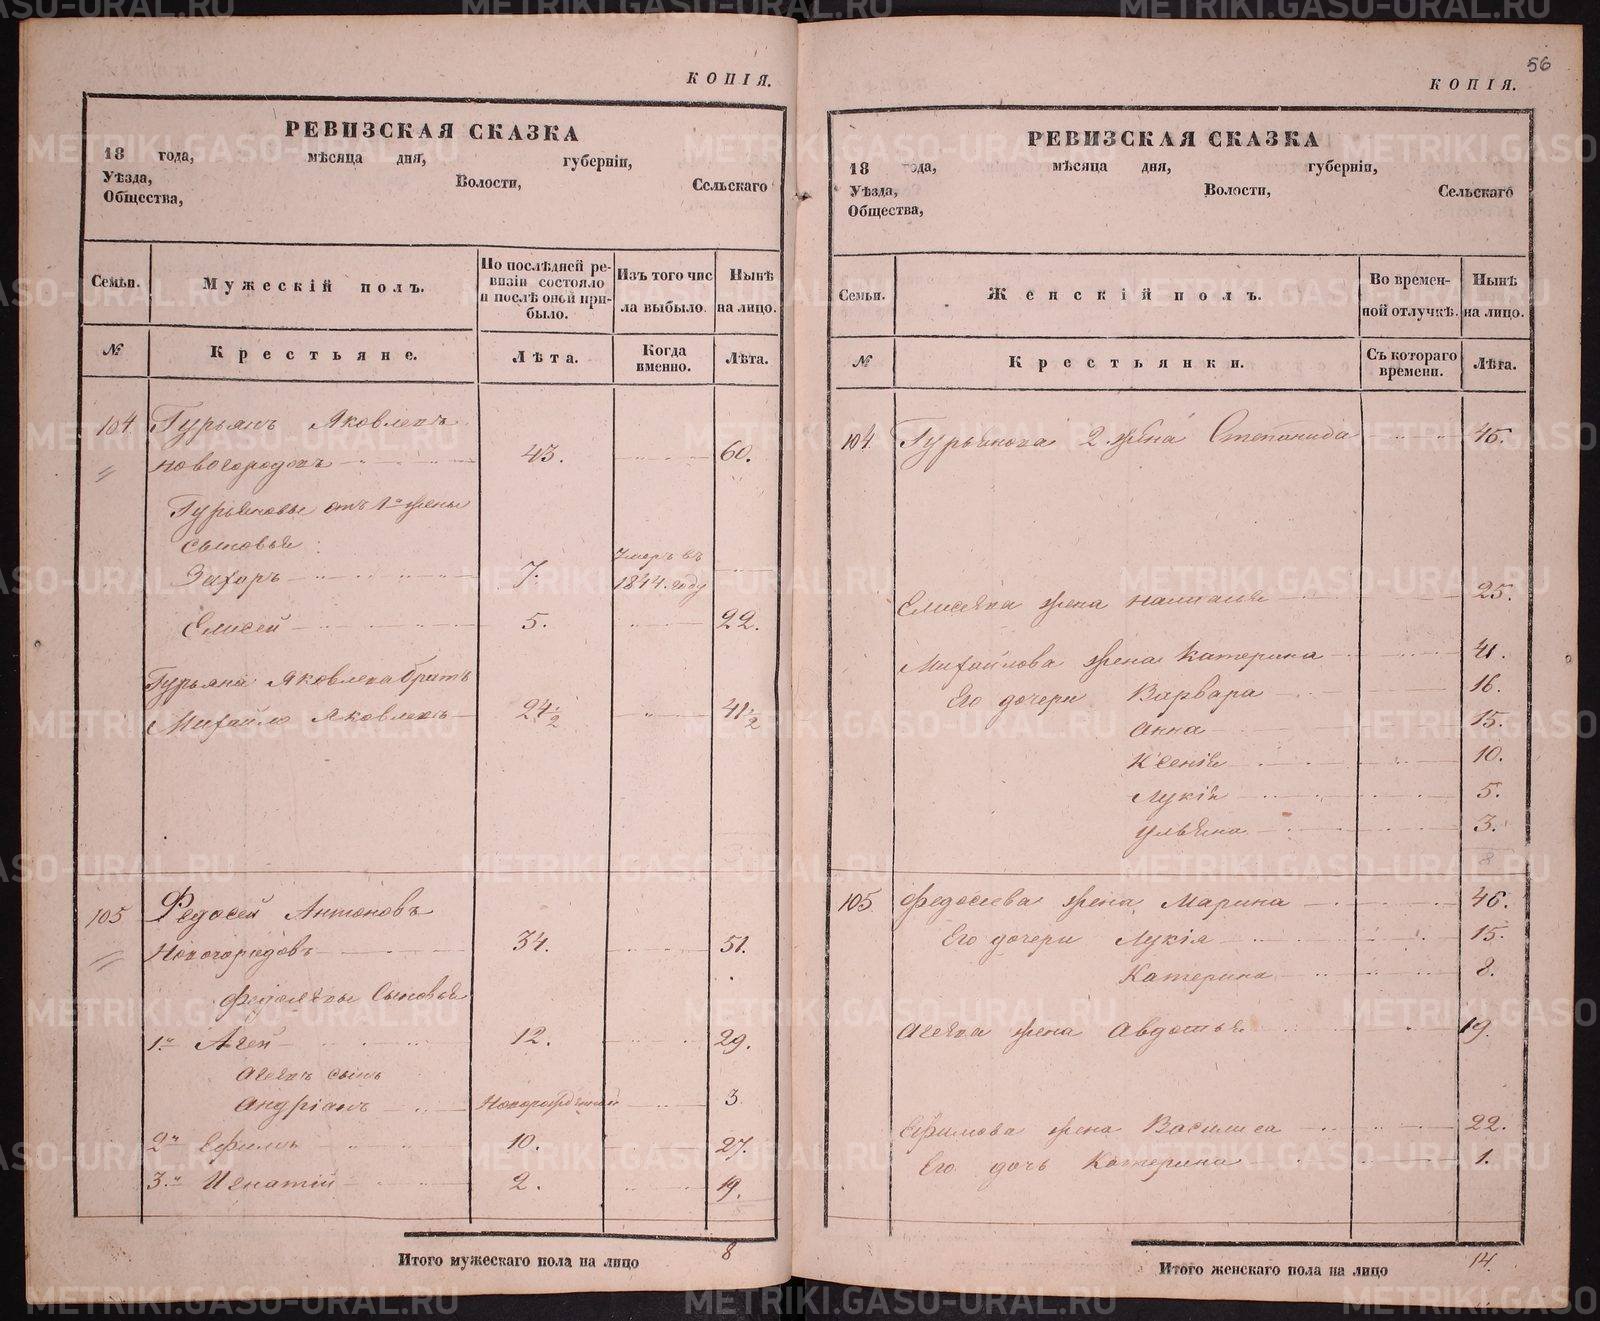 КОПІЯ.
РЕВИЗСКАЯ СКАЗКА
18 года, мѣсяца дня, губерніи,
Уѣзда, Волости, Сельскаго
Общества,
Семьи. Мужескій полъ. По послѣдней ревизіи состояло и послѣ оной прибыло. Изъ того числа выбыло. Нынѣ на лицо.
№ Крестьяне. Лѣта. Когда именно. Лѣта.
104 Гурьянъ Яковлевъ
Новогородовъ 43. 60.
Гурьяновы отъ 1й жены
сыновья:
Захаръ 7. Умеръ въ 1844 году
Елисей 5. 22.
Гурьяна Яковлева братъ
Михайло Яковлевъ 24 1/2 41 1/2
105 Федосей Антоновъ
Новогородовъ 34. 51.
Федосѣевы Сыновья
1й Агей 12. 29.
Агеевъ сынъ
Андріанъ Новорожденный 3
2й Ефимъ 10. 27.
3й Игнатій 2. 19.
Итого мужескаго пола на лицо 8
56
КОПІЯ.
РЕВИЗСКАЯ СКАЗКА
18 года, мѣсяца дня, губерніи,
Уѣзда, Волости, Сельскаго
Общества,
Семьи. Женскій полъ. Во временной отлучкѣ. Нынѣ на лицо.
№ Крестьянки. Съ котораго времени. Лѣта.
104 Гурьянова 2 жена Степанида 45.
Елисѣева жена Наталья 25.
Михайлова жена Катерина 41.
Его дочери Варвара 16.
Анна 15.
Ксенія 10.
Лукія 5.
Ульяна 3.
8
105 Федосеева жена Марина 46.
Его дочери Лукія 15.
Катерина 8.
Агеева жена Авдотья 19.
Ефимова жена Василиса 22.
Его дочь Катерина 1.
Итого женскаго пола на лицо 14.
METRIKI.GASO-URAL.RU